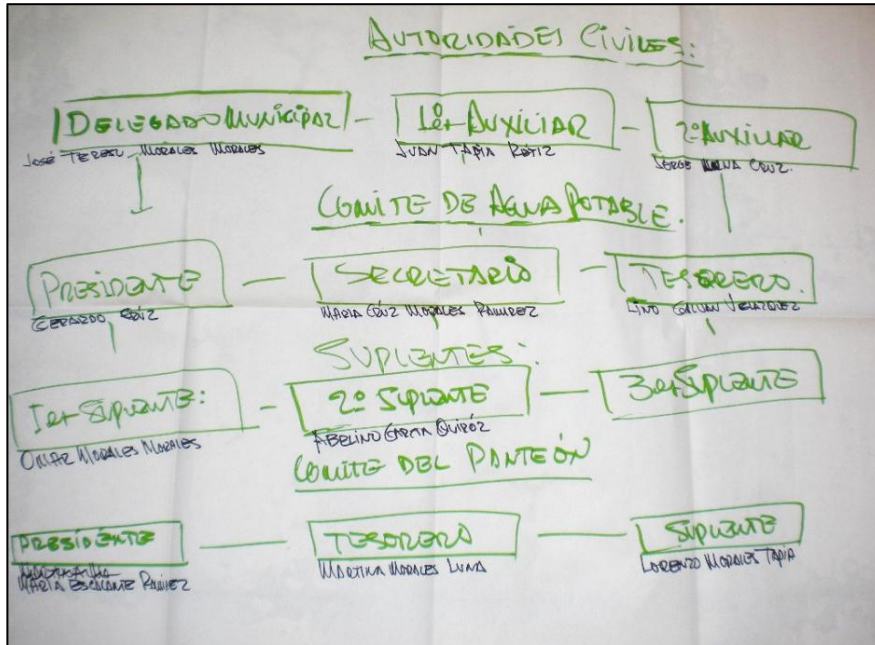 AUTORIDADES CIVILES:
DELEGADO MUNICIPAL - 1er AUXILIAR - 2º AUXILIAR
JOSÉ MORALES MORALES JUAN TAPIA JORGE CRUZ.
COMITE DE AGUA POTABLE.
PRESIDENTE - SECRETARIO - TESORERO.
GERARDO MARIA CRÚZ MORALES RAMIREZ LINO GALVAN VELAZQUEZ
SUPLENTES:
1er SUPLENTE: - 2º SUPLENTE - 3er SUPLENTE
OMAR MORALES MORALES ABELINO GARCIA QUIRÓZ
COMITE DEL PANTEÓN
PRESIDENTE - TESORERO - SUPLENTE
MARÍA ESCALANTE RAMÍREZ MARTINA MORALES LUNA LORENZO MORALES TAPIA